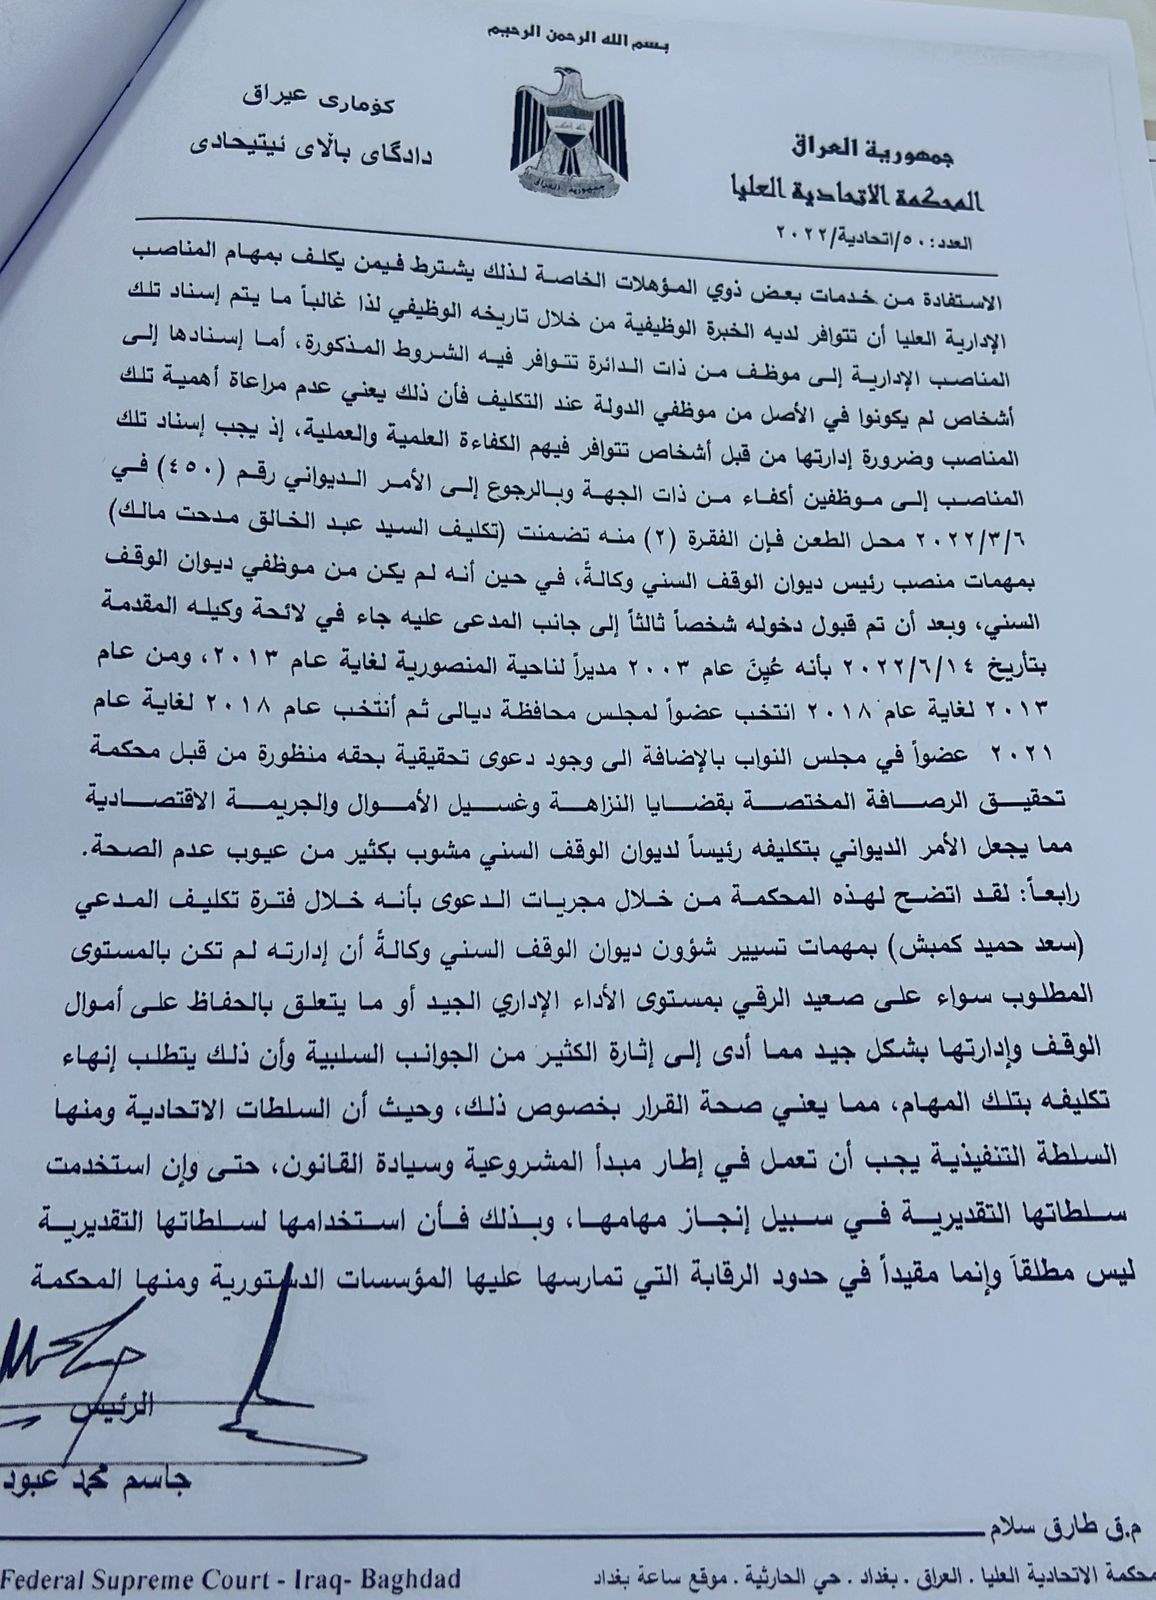 بسم الله الرحمن الرحيم
كۆماری عیراق
دادگای باڵای ئیتیحادی
جمهورية العراق
جمهورية العراق
المحكمة الاتحادية العليا
العدد: ٥٠/اتحادية/٢٠٢٢
الاستفادة من خدمات بعض ذوي المؤهلات الخاصة لذلك يشترط فيمن يكلف بمهام المناصب
الإدارية العليا أن تتوافر لديه الخبرة الوظيفية من خلال تاريخه الوظيفي لذا غالباً ما يتم إسناد تلك
المناصب الإدارية إلى موظف من ذات الدائرة تتوافر فيه الشروط المذكورة، أما إسنادها إلى
أشخاص لم يكونوا في الأصل من موظفي الدولة عند التكليف فأن ذلك يعني عدم مراعاة أهمية تلك
المناصب وضرورة إدارتها من قبل أشخاص تتوافر فيهم الكفاءة العلمية والعملية، إذ يجب إسناد تلك
المناصب إلى موظفين أكفاء من ذات الجهة وبالرجوع إلى الأمر الديواني رقم (٤٥٠) في
٢٠٢٢/٣/٦ محل الطعن فإن الفقرة (٢) منه تضمنت (تكليف السيد عبد الخالق مدحت مالك)
بمهمات منصب رئيس ديوان الوقف السني وكالةً، في حين أنه لم يكن من موظفي ديوان الوقف
السني، وبعد أن تم قبول دخوله شخصاً ثالثاً إلى جانب المدعى عليه جاء في لائحة وكيله المقدمة
بتأريخ ٢٠٢٢/٦/١٤ بأنه عُيِنَ عام ٢٠٠٣ مديراً لناحية المنصورية لغاية عام ٢٠١٣، ومن عام
٢٠١٣ لغاية عام ٢٠١٨ انتخب عضواً لمجلس محافظة ديالى ثم أنتخب عام ٢٠١٨ لغاية عام
٢٠٢١ عضواً في مجلس النواب بالإضافة الى وجود دعوى تحقيقية بحقه منظورة من قبل محكمة
تحقيق الرصافة المختصة بقضايا النزاهة وغسيل الأموال والجريمة الاقتصادية
مما يجعل الأمر الديواني بتكليفه رئيساً لديوان الوقف السني مشوب بكثير من عيوب عدم الصحة.
رابعاً: لقد اتضح لهذه المحكمة من خلال مجريات الدعوى بأنه خلال فترة تكليف المدعي
(سعد حميد كمبش) بمهمات تسيير شؤون ديوان الوقف السني وكالةً أن إدارته لم تكن بالمستوى
المطلوب سواء على صعيد الرقي بمستوى الأداء الإداري الجيد أو ما يتعلق بالحفاظ على أموال
الوقف وإدارتها بشكل جيد مما أدى إلى إثارة الكثير من الجوانب السلبية وأن ذلك يتطلب إنهاء
تكليفه بتلك المهام، مما يعني صحة القرار بخصوص ذلك، وحيث أن السلطات الاتحادية ومنها
السلطة التنفيذية يجب أن تعمل في إطار مبدأ المشروعية وسيادة القانون، حتى وإن استخدمت
سلطاتها التقديرية في سبيل إنجاز مهامها، وبذلك فأن استخدامها لسلطاتها التقديرية
ليس مطلقاَ وإنما مقيداً في حدود الرقابة التي تمارسها عليها المؤسسات الدستورية ومنها المحكمة
الرئيس
جاسم محمد عبود
م.ق طارق سلام
Federal Supreme Court - Iraq- Baghdad
محكمة الاتحادية العليا . العراق . بغداد . حي الحارثية . موقع ساعة بغداد